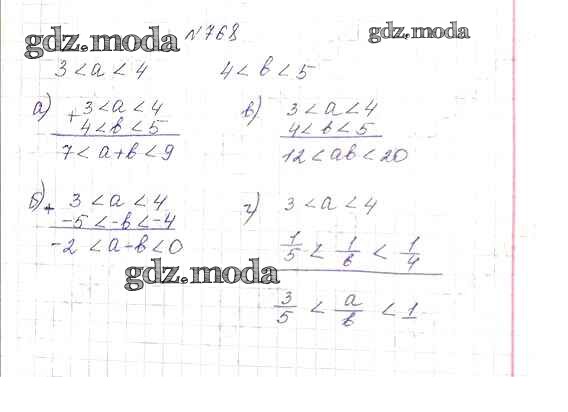 gdz.moda №768 gdz.moda
3 < a < 4 4 < b < 5
а) + 3 < a < 4
4 < b < 5
7 < a + b < 9
в) 3 < a < 4
4 < b < 5
12 < ab < 20
б) + 3 < a < 4
-5 < -b < -4
-2 < a - b < 0
г) 3 < a < 4
1/5 < 1/b < 1/4
gdz.moda
3/5 < a/b < 1